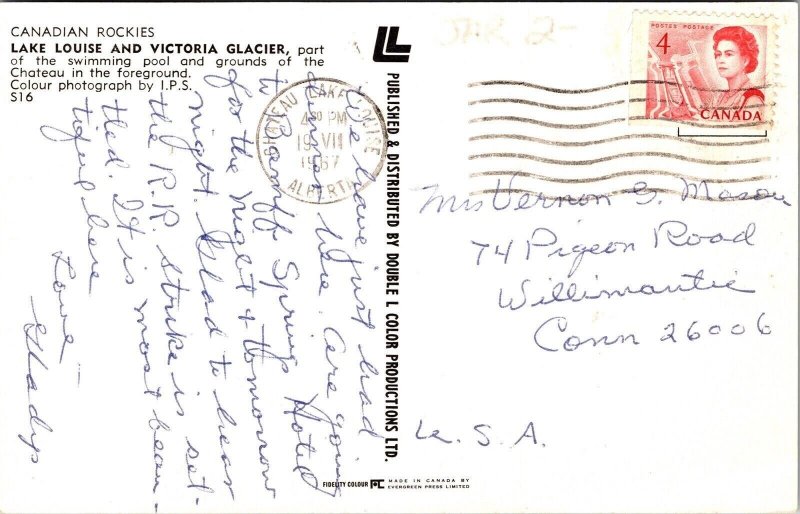 CANADIAN ROCKIES
LAKE LOUISE AND VICTORIA GLACIER, part
of the swimming pool and grounds of the
Chateau in the foreground.
Colour photograph by I.P.S.
S16
We have just had
dinner here. Are going
to Banff Springs Hotel
for the night & tomorrow
night. Glad to hear
the R.R. strike is set-
tled. It is most beau-
tiful here
Love -
Gladys
CHATEAU LAKE LOUISE
4 30 PM
19 VII
1967
ALBERTA
PUBLISHED & DISTRIBUTED BY DOUBLE L COLOR PRODUCTIONS LTD.
FIDELITY COLOUR
MADE IN CANADA BY
EVERGREEN PRESS LIMITED
POSTES POSTAGE
4
CANADA
Mrs Vernon S. Mason
74 Pigeon Road
Willimantic
Conn 26006
U.S.A.